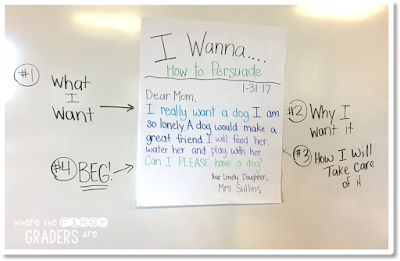 I Wanna....
How to Persuade
1-31-17
Dear Mom,
I really want a dog I am
so lonely A dog would make a
great friend I will feed her,
water her and play with her
Can I PLEASE have a dog?
Your Lonely Daughter,
Mrs Sullins
#1
What
I
Want
#4 BEG!
#2 Why I
Want it
#3 How I Will
Take Care
of it
where the FIRST
GRADERS are